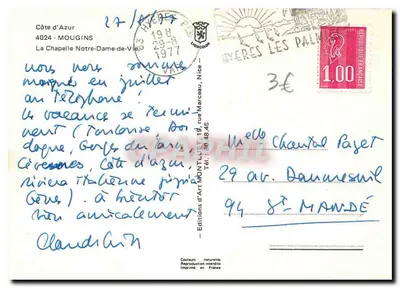 27/8/77
Côte d'Azur
4024 - MOUGINS
La Chapelle Notre-Dame-de-Vie
nous nous sommes
manqués en juillet
au téléphone !
les vacances se termi-
nent (Toulouse Dor-
dogne, Gorges du Tarn,
Cévennes, Côte d'azur,
Riviera Italienne jusqu'à
Gênes). A bientôt
bien amicalement
Editions d'Art MONTALVET, rue Marceau, Nice
83 HYERES
19 H
29-8
1977
VAR
HYERES LES PALMIERS
1.00
3€
Melle Chantal Paget
29 av. Daumesnil
94 St-MANDÉ
Couleurs naturelles
Reproduction interdite
Imprimé en France